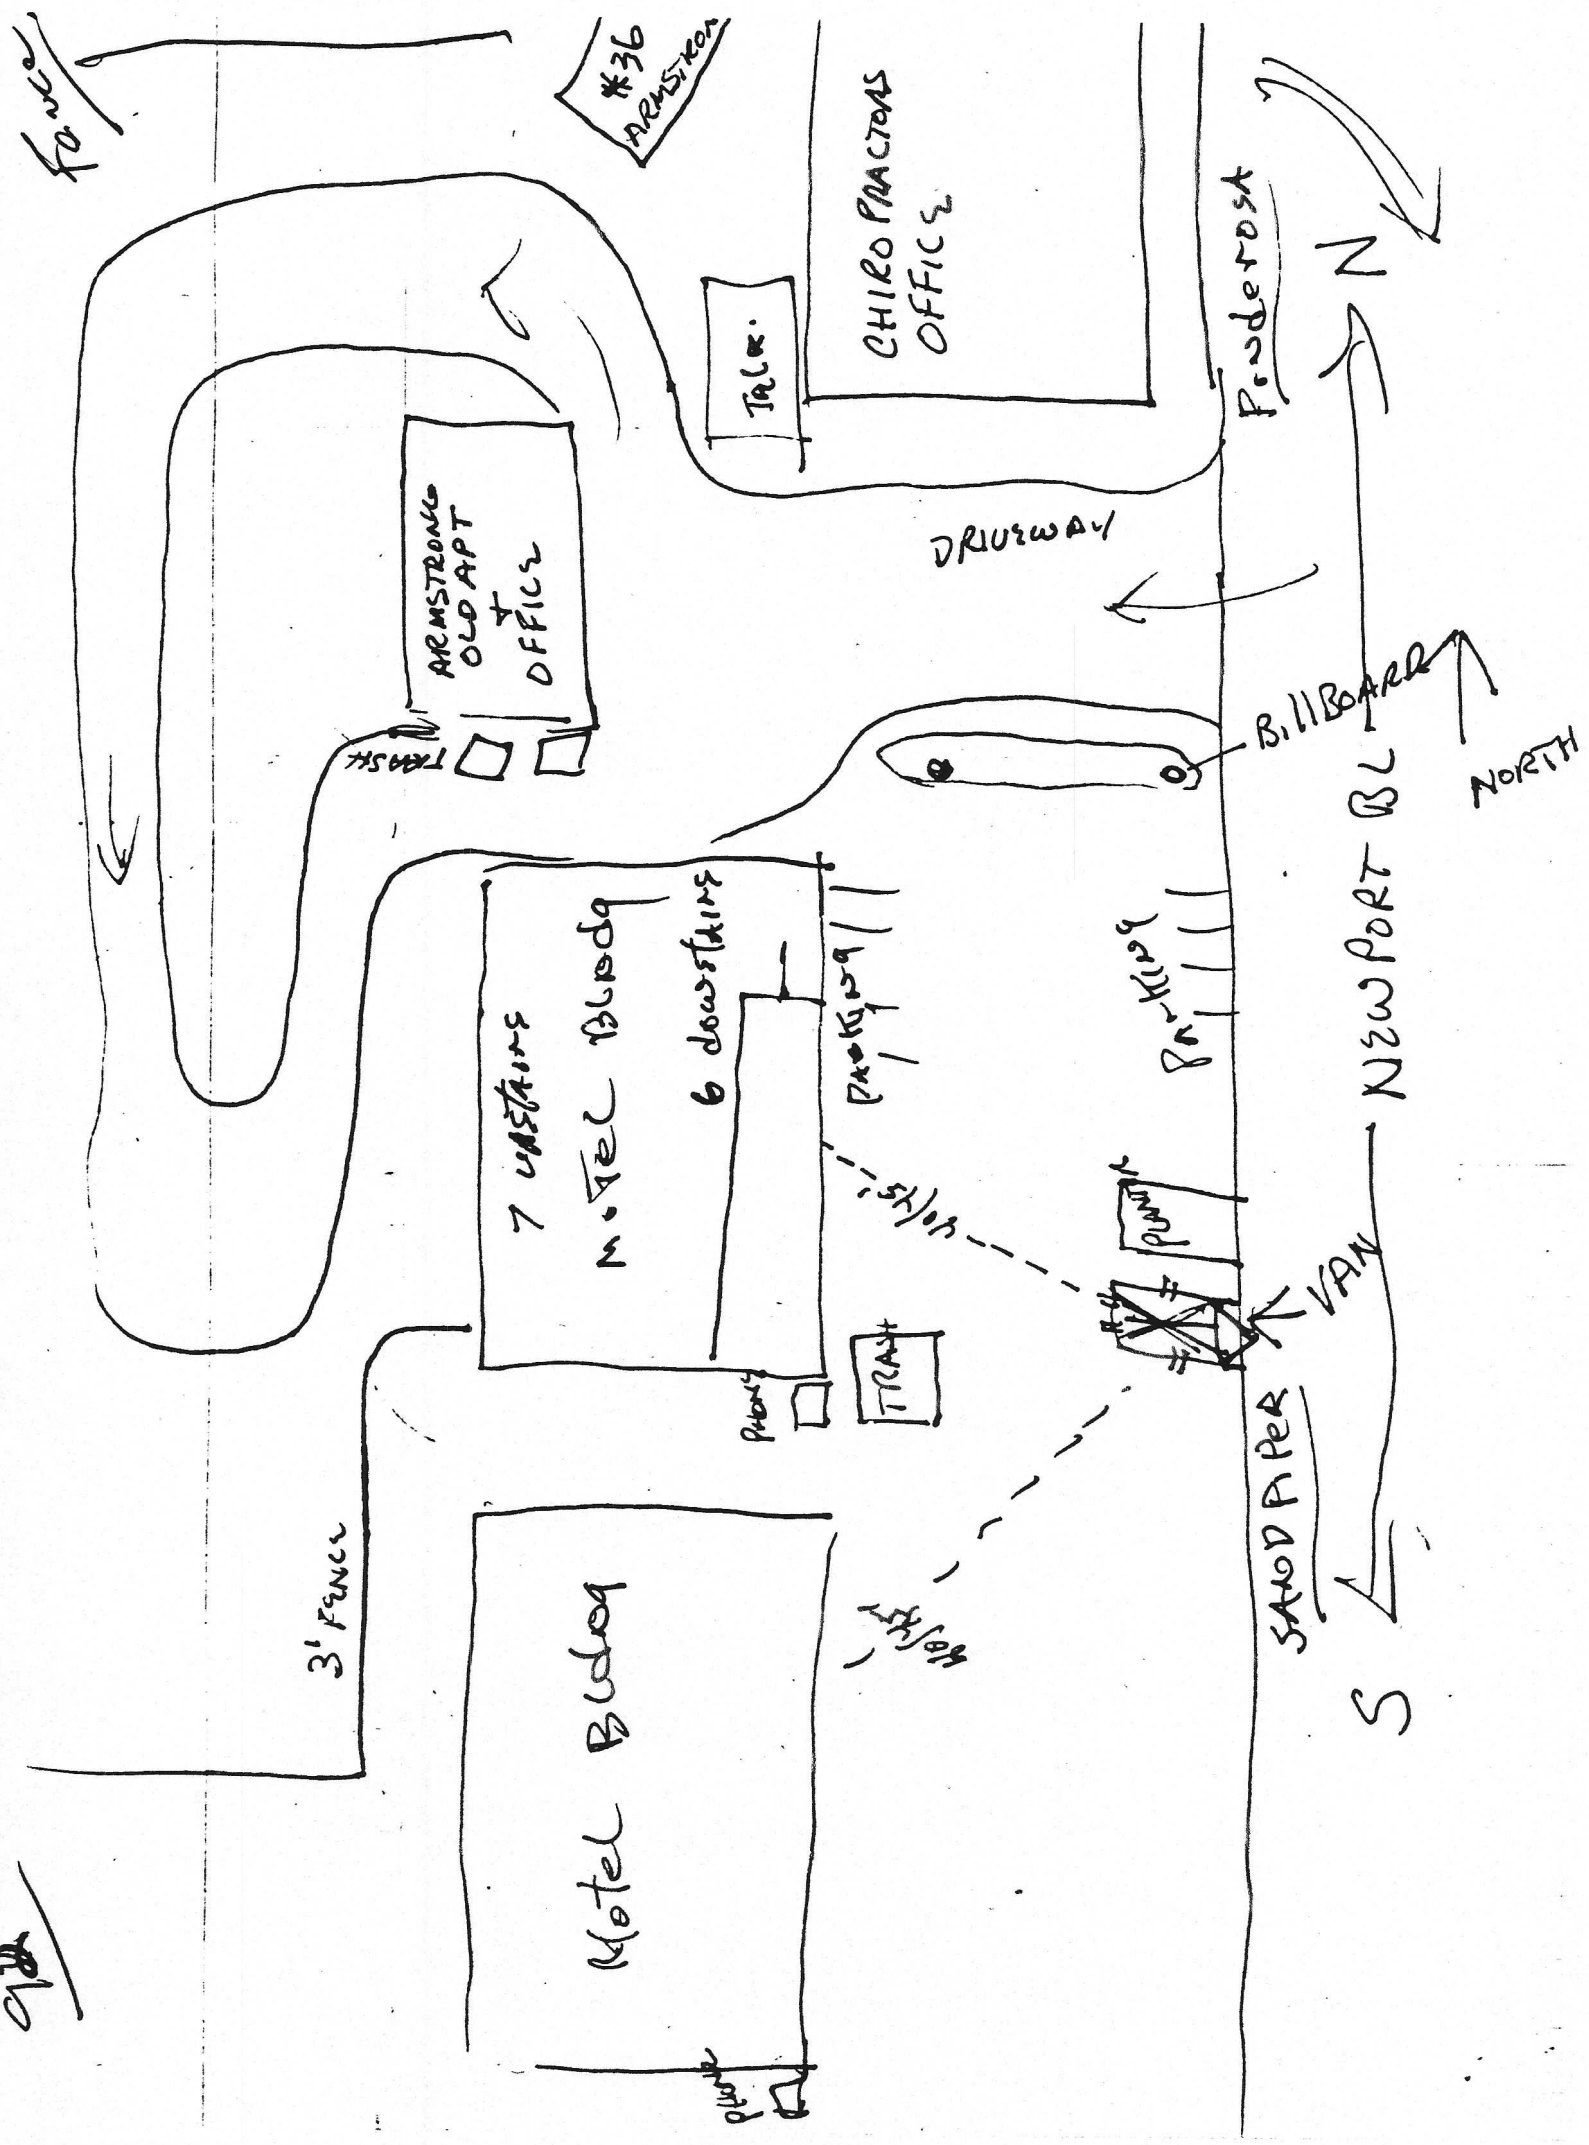 Fance
#36
ARMSTRON
CHIROPRACTORS
OFFICE
Ponderosa
N
ARMSTRONG
OLD APT
+
OFFICE
TRASH
DRIVEWAY
BillBOARD
NORTH
NEWPORT BL
7 UPSTAIRS
MOTEL BLDG
6 DOWNSTAIRS
PARKING
PARKING
PLANTR
40/45
VAN
PHONE
TRASH
SANDPIPER
3' FENCE
Motel Bldg
40/45
PHONE
S